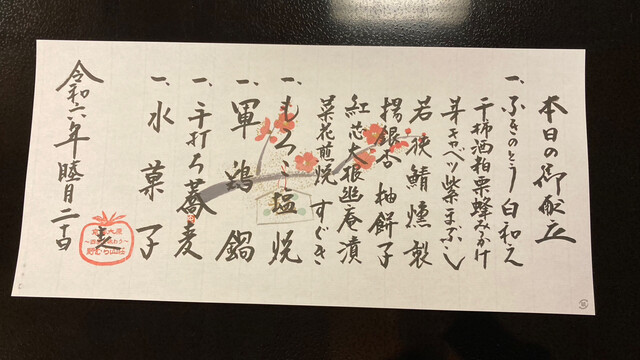 本日の御献立
一、ふきのとう白和え
干柿酒粕栗蜂みかけ
芽キャベツ紫まぶし
若狭鯖燻製
揚銀杏 柚餅子
紅芯大根幽庵漬
菜花煎焼 すぐき
一、もろこ塩焼
一、軍鶏鍋
一、手打ち蕎麦
一、水菓子
令和六年睦月二十日
野むら山荘